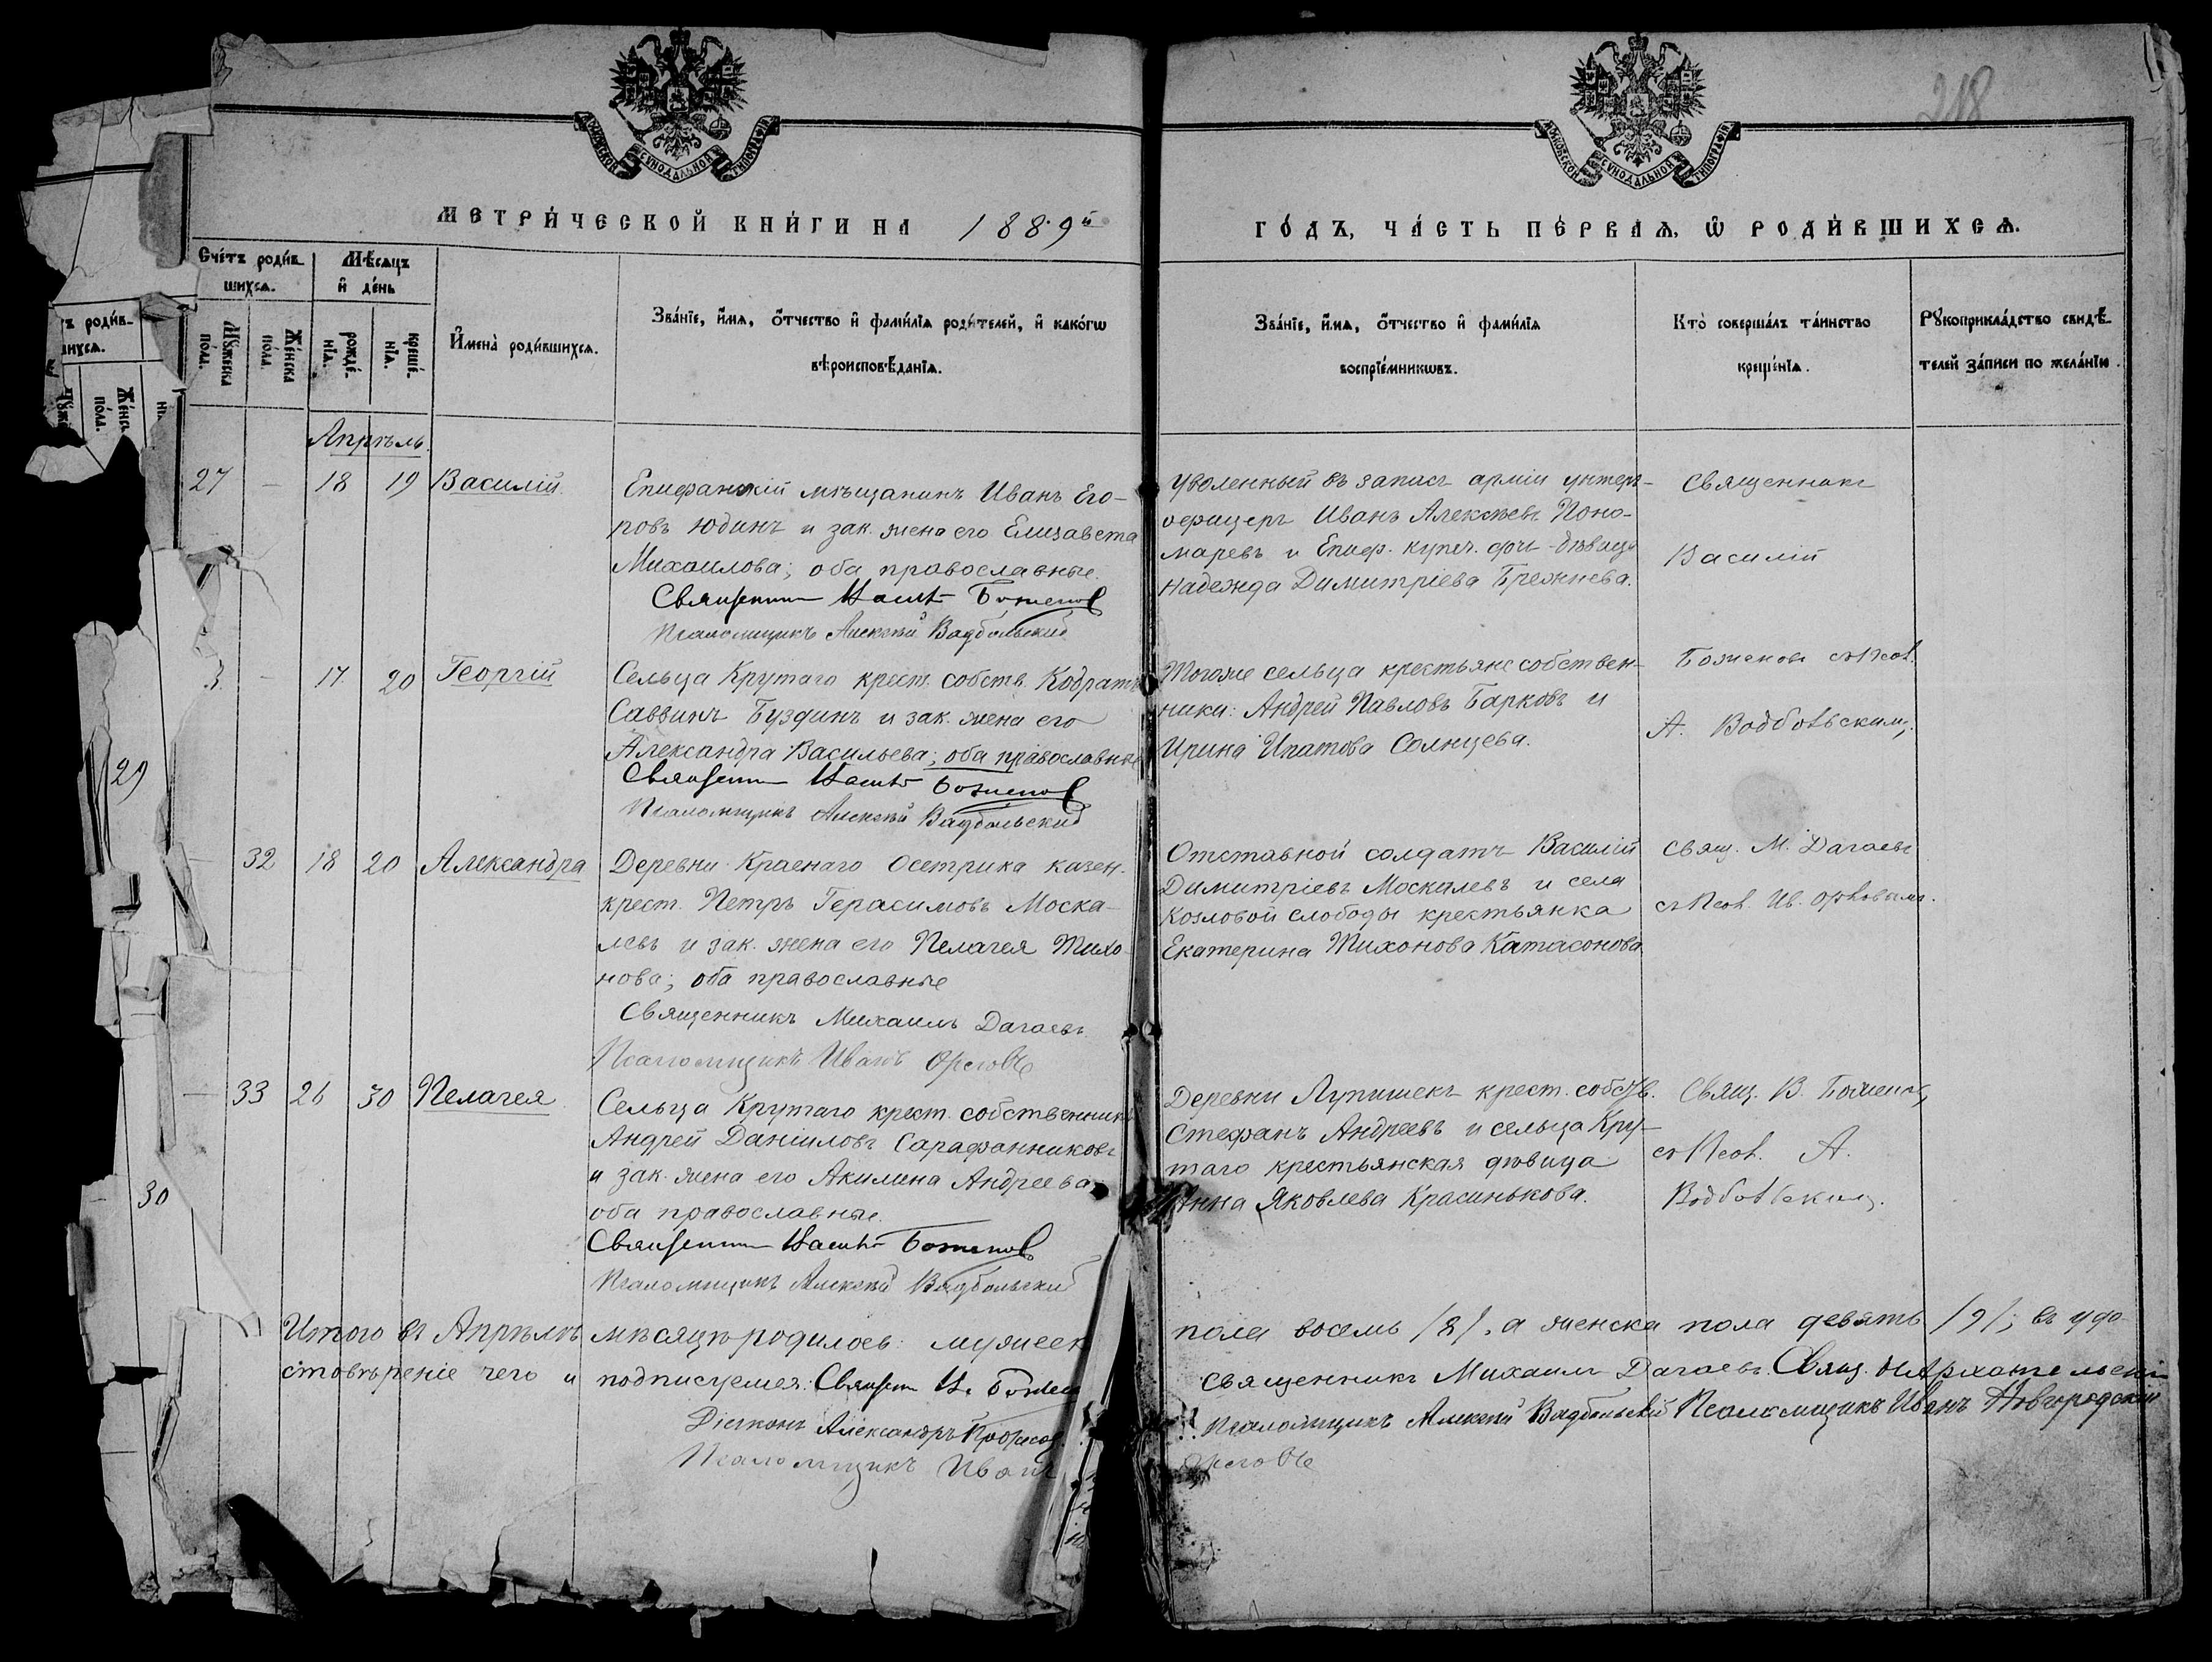 218
МОСКОВСКОЙ СѴНОДАЛЬНОЙ ТИПОГРАФІИ
МОСКОВСКОЙ СѴНОДАЛЬНОЙ ТИПОГРАФІИ
МЕТРИ́ЧЕСКОЙ КНИ́ГИ НА 1889й
ГО́ДЪ, ЧА́СТЬ ПЕ́РВАѦ, Ѿ РОДИ́ВШИХСѦ.
Сче́тъ роди́в-
шихсѧ.
Мѣ́сѧцъ
и҆ де́нь
Мꙋ́жеска
по́ла.
Же́нска
по́ла.
рожде́-
нїѧ.
креще́-
нїѧ.
И҆мена̀ роди́вшихсѧ.
Зва́нїе, и҆́мѧ, ѻ҆́тчество и҆ фамѝлїѧ роди́телей, и҆ како́гѡ
вѣроисповѣ́данїѧ.
Зва́нїе, и҆́мѧ, ѻ҆́тчество и҆ фами́лїѧ
воспрїе́мникѡвъ.
Кто̀ соверша́лъ та́инство
креще́нїѧ.
Рꙋкоприкла́дство свидѣ́-
телей за́писи по жела́нїю.
Апрѣль.
27 — 18 19 Василій.
Епифанскій мѣщанинъ Иванъ Его-
ровъ Юдинъ и зак. жена его Елизавета
Михаилова; оба православные.
Священникъ Божено
Псаломщикъ Алексѣй Вадбольскій
Уволенный въ запасъ арміи унтеръ-
офицеръ Иванъ Алексѣевъ Поно-
маревъ и Епиф. купеч. дѣвица
Надежда Димитріева Брежнева.
Священникъ
Василій
Боженовъ съ псал.
А. Вадбольскимъ.
— 17 20 Георгій
Сельца Крутаго крест. собств. Кодратъ
Саввинъ Буздинъ и зак. жена его
Александра Васильева; оба православные
Псаломщикъ Алексѣй Вадбольскій
Тогоже сельца крестьяне собствен-
ники: Андрей Павловъ Барковъ и
Ирина Ипатова Солнцева.
29
— 32 18 20 Александра
Деревни Краснаго Осетрика казен.
крест. Петръ Герасимовъ Моска-
левъ и зак. жена его Пелагея Тихо-
нова; оба православные
Священникъ Михаилъ Дагаевъ
Псаломщикъ Иванъ Орловъ
Отставной солдатъ Василій
Димитріевъ Москалевъ и села
Козловой слободы крестьянка
Екатерина Тихонова Катасонова.
Свящ. М. Дагаевъ
съ псал. Ив. Орловымъ.
— 33 26 30 Пелагея
Сельца Крутаго крест. собственникъ
Андрей Даніиловъ Сарафанниковъ
и зак. жена его Акилина Андреева
оба православные.
Псаломщикъ Алексѣй Вадбольскій
Деревни Лупишекъ крест. собств.
Стефанъ Андреевъ и сельца Кру-
таго крестьянская дѣвица
Анна Яковлева Красинькова.
Свящ. В. Боженовъ
съ псал. А.
Вадбольским.
30
Итого въ Апрѣлѣ мѣсяцѣ родилось: мужеск
пола восемь /8/, а женска пола девять /9/; въ удо-
стовѣреніе чего и подписуемся:
Священникъ Михаилъ Дагаевъ. Свящ. Архангельскій
Діаконъ Александръ
Псаломщикъ Алексѣй Вадбольскій Псаломщикъ Иванъ Новгородскій
Псаломщикъ Иванъ Орловъ